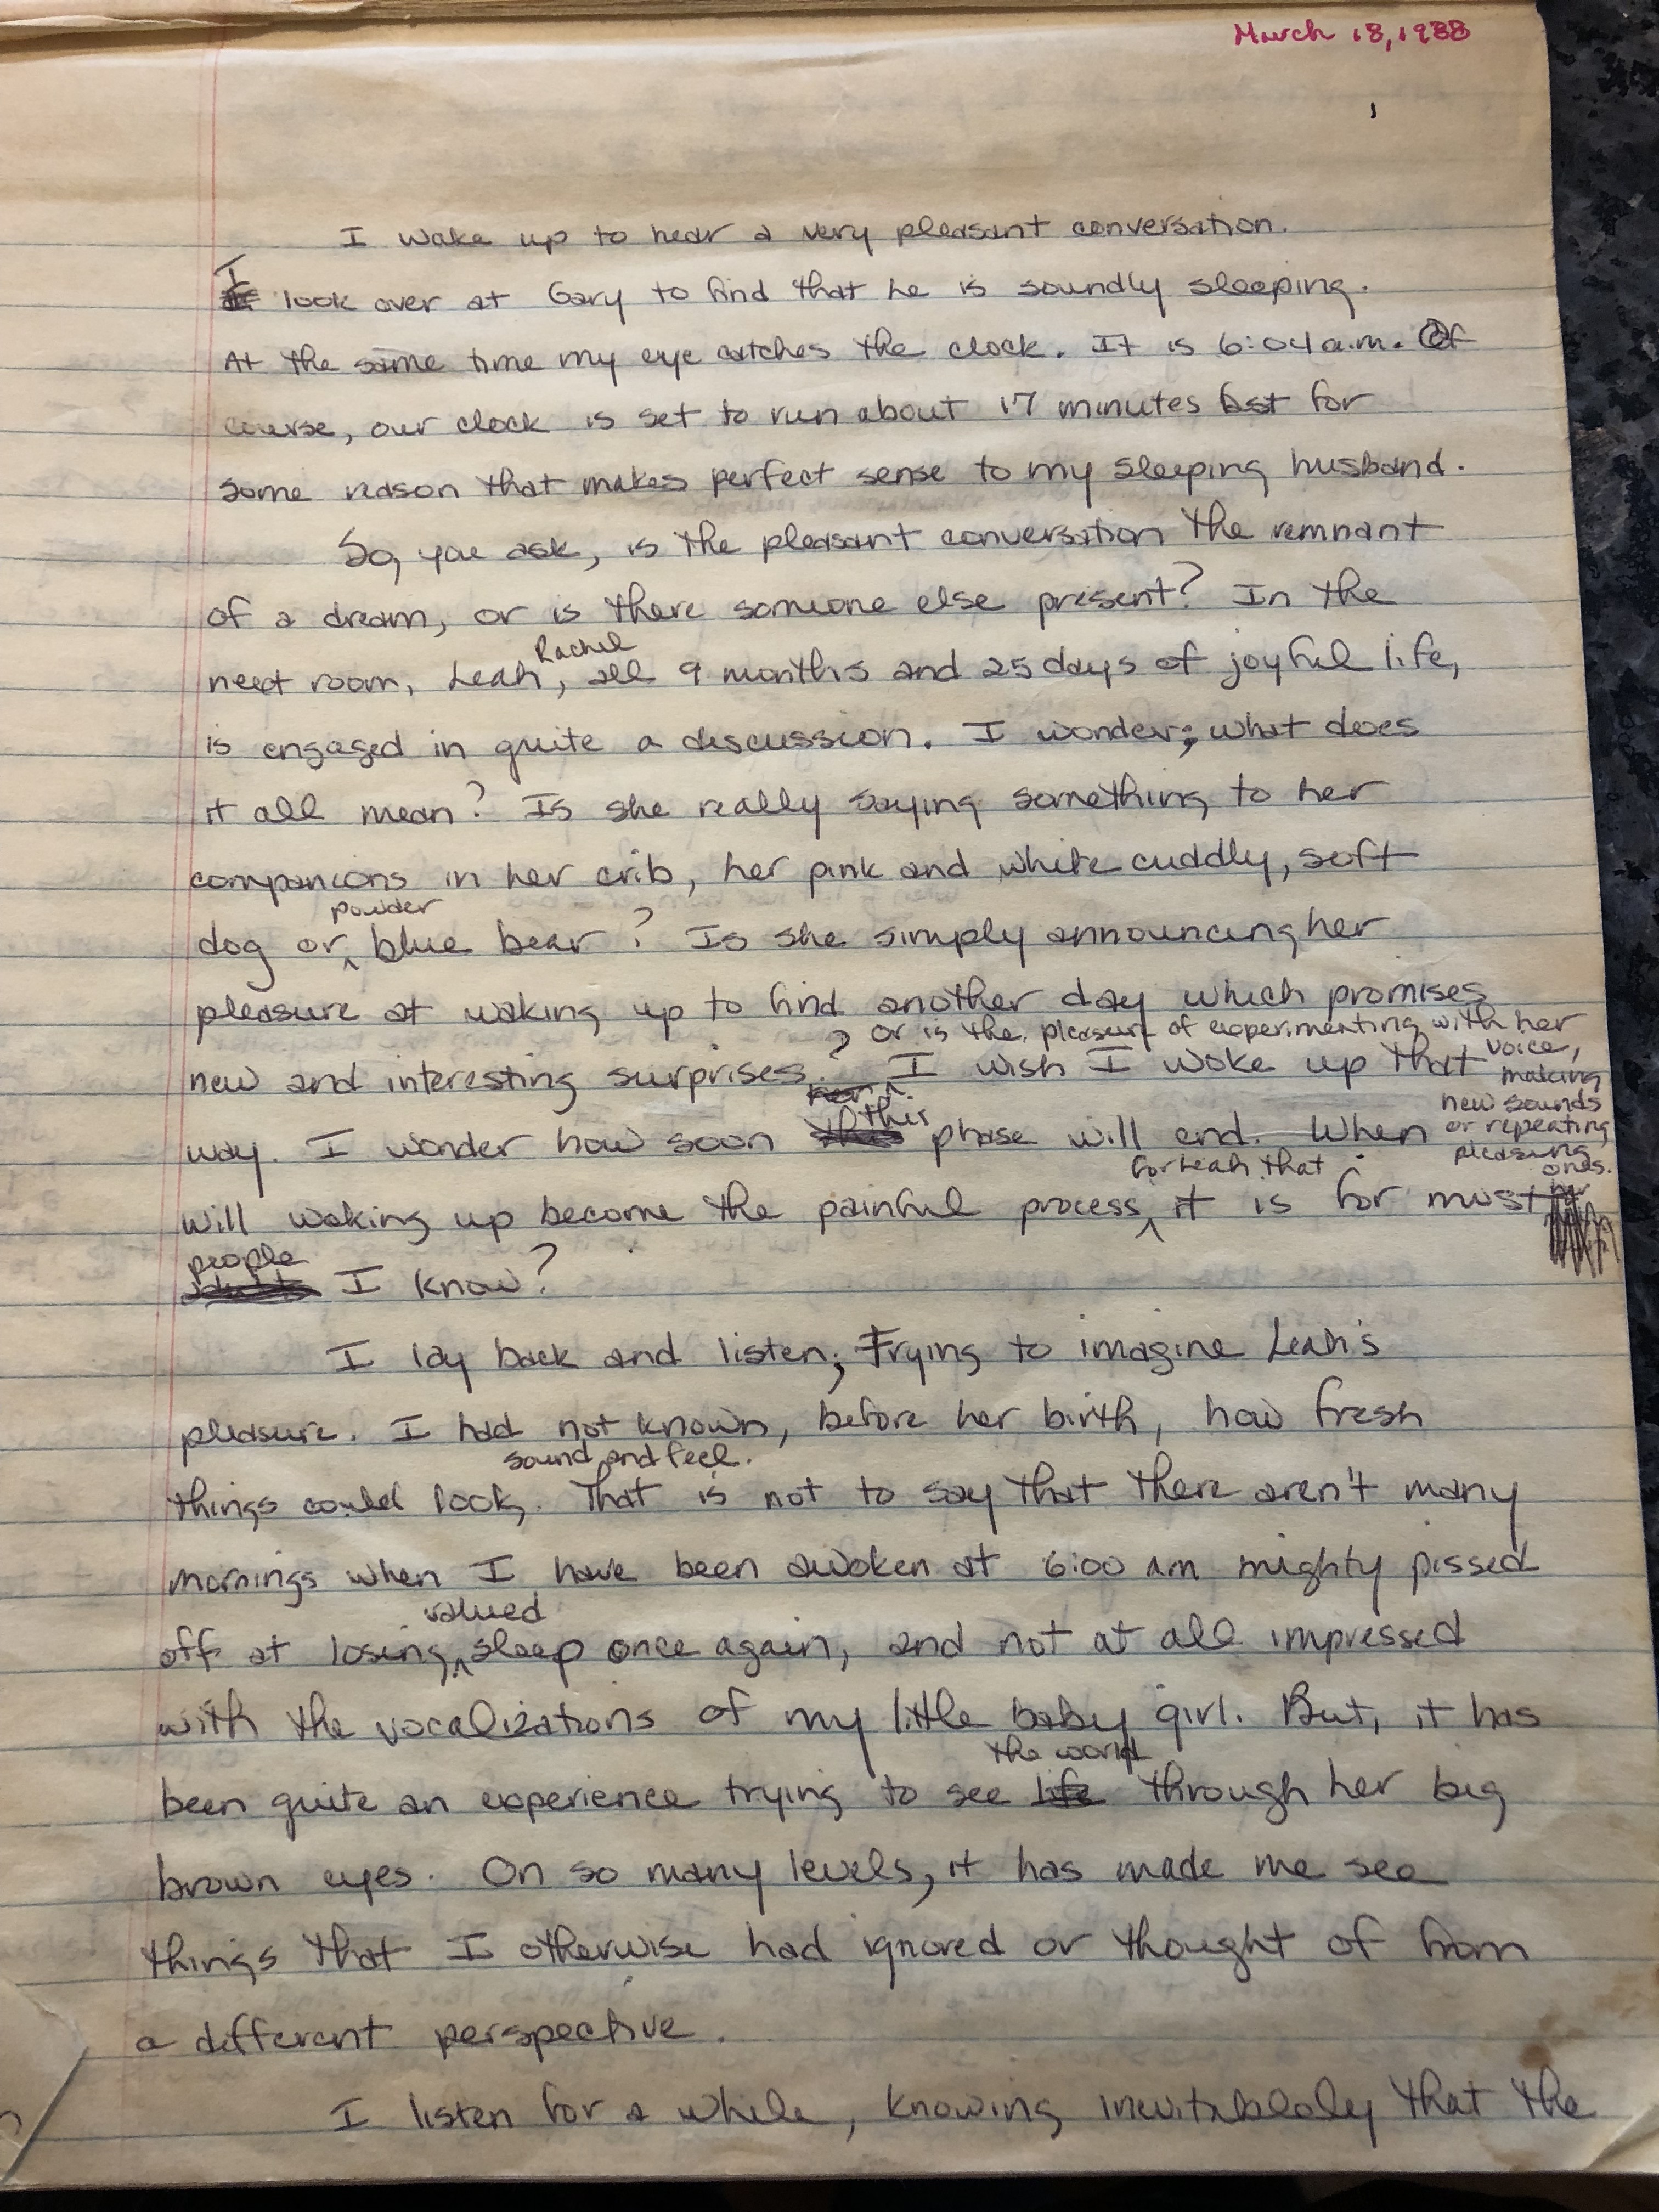 March 18, 1988
I wake up to hear a very pleasant conversation.
I
look over at Gary to find that he is soundly sleeping.
At the same time my eye catches the clock. It is 6:04 a.m. Of
course, our clock is set to run about 17 minutes fast for
some reason that makes perfect sense to my sleeping husband.
So, you ask, is the pleasant conversation the remnant
of a dream, or is there someone else present? In the
Rachel
next room, Leah, all 9 months and 25 days of joyful life,
is engaged in quite a discussion. I wonder, what does
it all mean? Is she really saying something to her
companions in her crib, her pink and white cuddly, soft
powder
dog or ^ blue bear? Is she simply announcing her
pleasure at waking up to find another day which promises
? or is the pleasure of experimenting with her
voice,
new and interesting surprises. ^ I wish I woke up that
making
new sounds
her this
way. I wonder how soon phase will end. When
or repeating
pleasing
ones.
for Leah that
will waking up become the painful process ^ it is for most
people
I know?
I lay back and listen; trying to imagine Leah's
pleasure. I had not known, before her birth, how fresh
sound and feel.
things could look, That is not to say that there aren't many
mornings when I have been awoken at 6:00 am mighty pissed
valued
off at losing ^ sleep once again, and not at all impressed
with the vocalizations of my little baby girl. But, it has
the world
been quite an experience trying to see life through her big
brown eyes. On so many levels, it has made me see
things that I otherwise had ignored or thought of from
a different perspective.
I listen for a while, knowing inevitablely that the